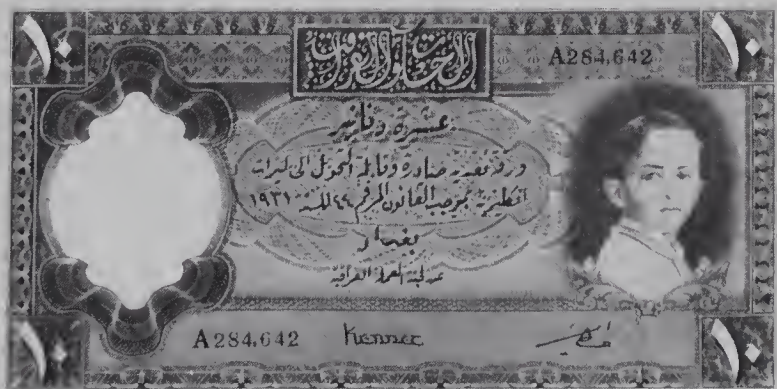 ١٠
١٠
الحكومة العراقية
A284,642
عشرة دنانير
ورقة نقدية صادرة وقابلة التحويل الى ليرات
انكليزية بموجب القانون المرقم ٤٤ لسنة ١٩٣١
بغداد
عن لجنة العملة العراقية
A284,642
Kennet
١٠
١٠